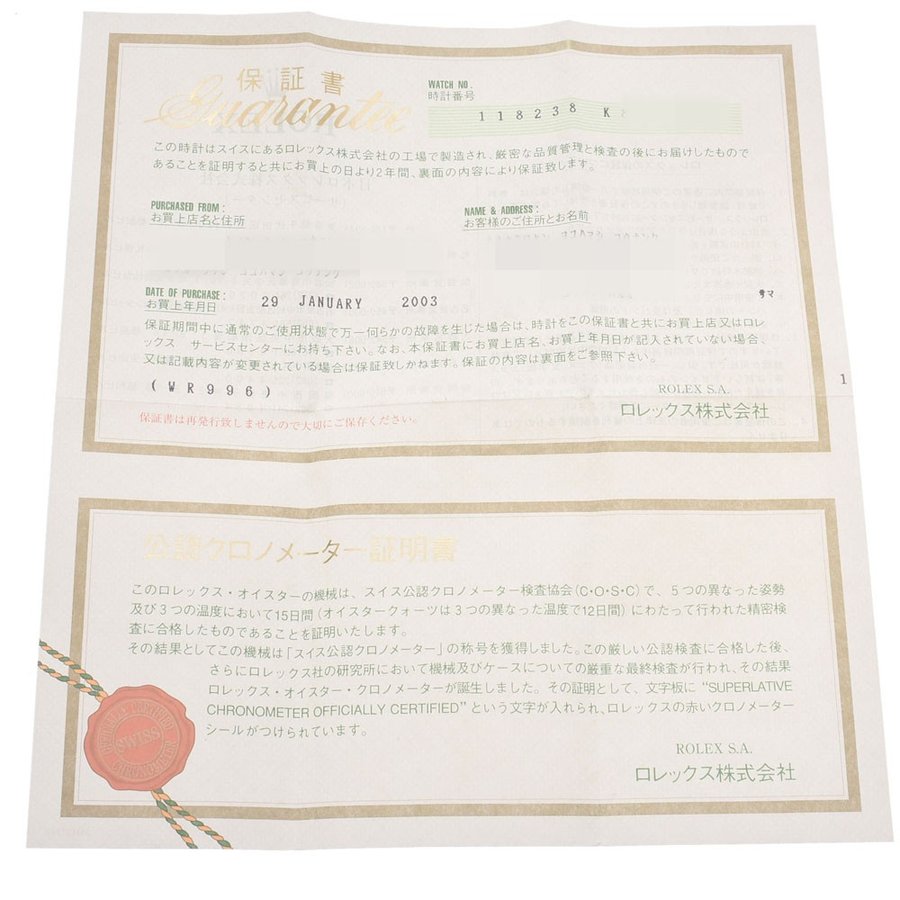 保証書
Guarantee
WATCH NO.
時計番号
118238 K
この時計はスイスにあるロレックス株式会社の工場で製造され、厳密な品質管理と検査の後にお届けしたもので
あることを証明すると共にお買上の日より2年間、裏面の内容により保証致します。
PURCHASED FROM:
お買上店名と住所
NAME & ADDRESS:
お客様のご住所とお名前
DATE OF PURCHASE:
お買上年月日
29 JANUARY 2003
サマ
保証期間中に通常のご使用状態で万一何らかの故障を生じた場合は、時計をこの保証書と共にお買上店又はロレ
ックス サービスセンターにお持ち下さい。なお、本保証書にお買上店名、お買上年月日が記入されていない場合、
又は記載内容が変更されている場合は保証致しかねます。保証の内容は裏面をご参照下さい。
(WR996)
1
ROLEX S.A.
ロレックス株式会社
保証書は再発行致しませんので大切にご保存ください。
公認クロノメーター証明書
このロレックス・オイスターの機械は、スイス公認クロノメーター検査協会(C・O・S・C)で、5つの異なった姿勢
及び3つの温度において15日間(オイスタークォーツは3つの異なった温度で12日間)にわたって行われた精密検
査に合格したものであることを証明いたします。
その結果としてこの機械は「スイス公認クロノメーター」の称号を獲得しました。この厳しい公認検査に合格した後、
さらにロレックス社の研究所において機械及びケースについての厳重な最終検査が行われ、その結果
ロレックス・オイスター・クロノメーターが誕生しました。その証明として、文字板に“SUPERLATIVE
CHRONOMETER OFFICIALLY CERTIFIED”という文字が入れられ、ロレックスの赤いクロノメーター
シールがつけられています。
SWISS
ROLEX S.A.
ロレックス株式会社